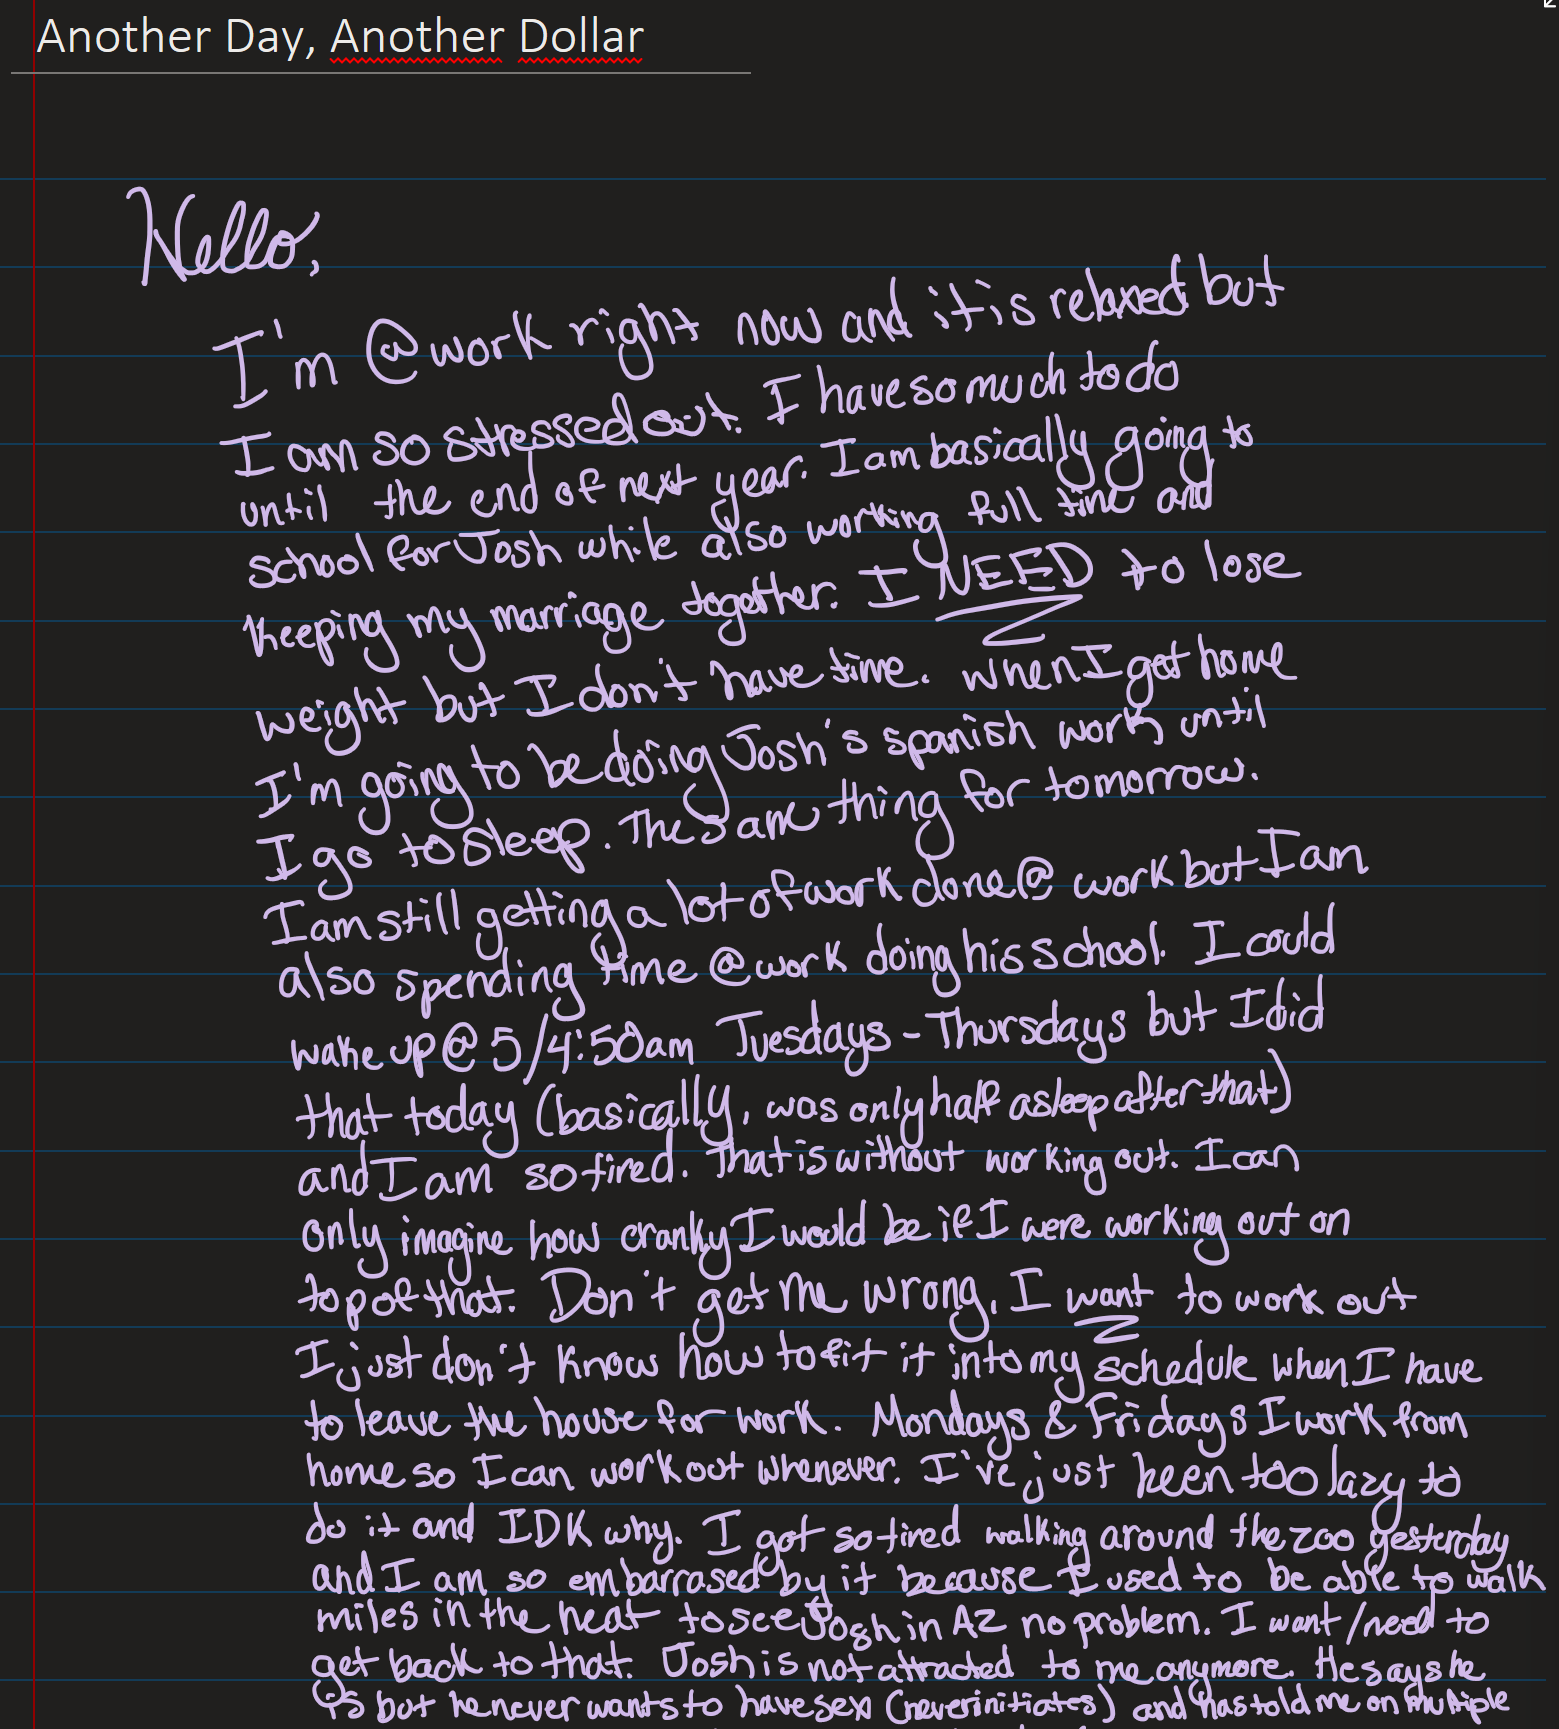 Another Day, Another Dollar
Hello,
I'm @ work right now and it is relaxed but
I am so stressed out. I have so much to do
until the end of next year. I am basically going to
school for Josh while also working full time and
keeping my marriage together. I NEED to lose
weight but I don't have time. When I get home
I'm going to be doing Josh's spanish work until
I go to sleep. The same thing for tomorrow.
I am still getting a lot of work done @ work but I am
also spending time @ work doing his school. I could
wake up @ 5/4:50am Tuesdays - Thursdays but I did
that today (basically, was only half asleep after that)
and I am so tired. That is without working out. I can
only imagine how cranky I would be if I were working out on
top of that. Don't get me wrong, I want to work out
I just don't know how to fit it into my schedule when I have
to leave the house for work. Mondays & Fridays I work from
home so I can work out whenever. I've just been too lazy to
do it and IDK why. I got so tired walking around the zoo yesterday
and I am so embarrased by it because I used to be able to walk
miles in the heat to see Josh in AZ no problem. I want/need to
get back to that. Josh is not attracted to me anymore. He says he
is but he never wants to have sex (never initiates) and has told me on multiple